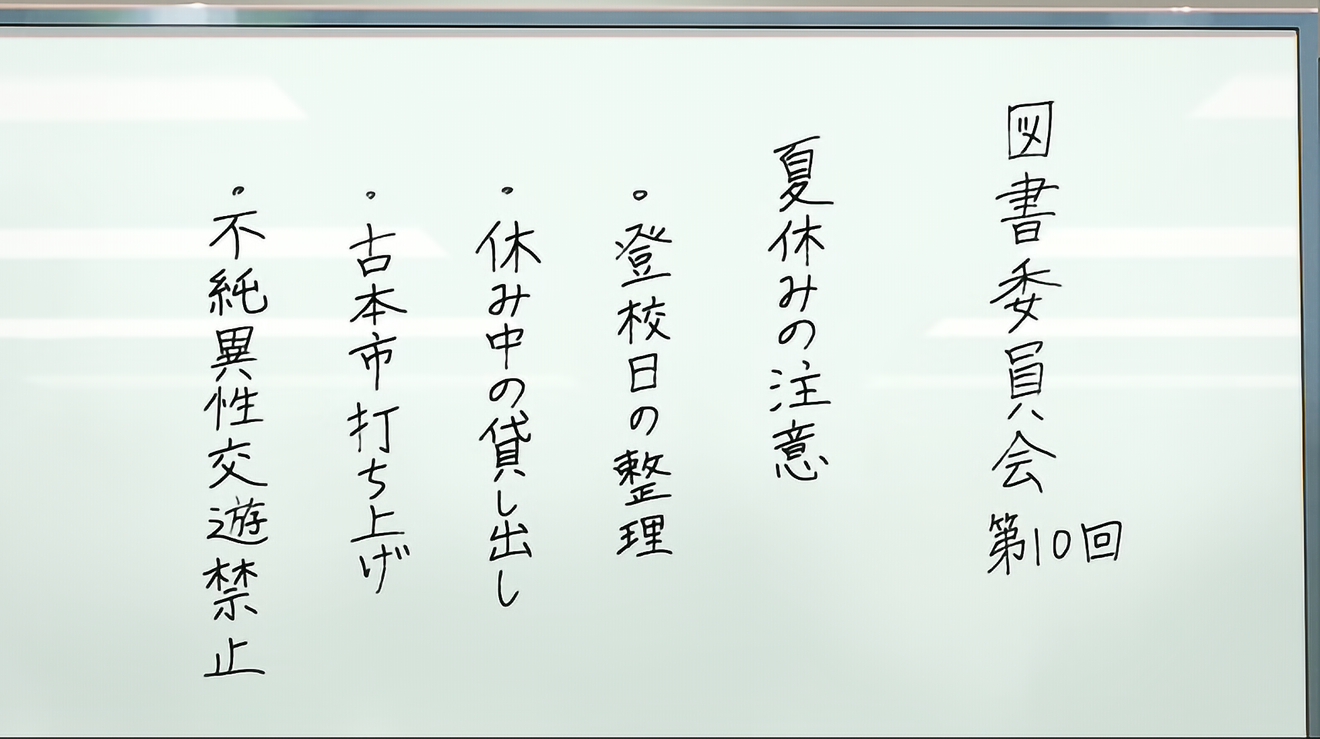 図書委員会 第10回
夏休みの注意
・登校日の整理
・休み中の貸し出し
・古本市打ち上げ
・不純異性交遊禁止